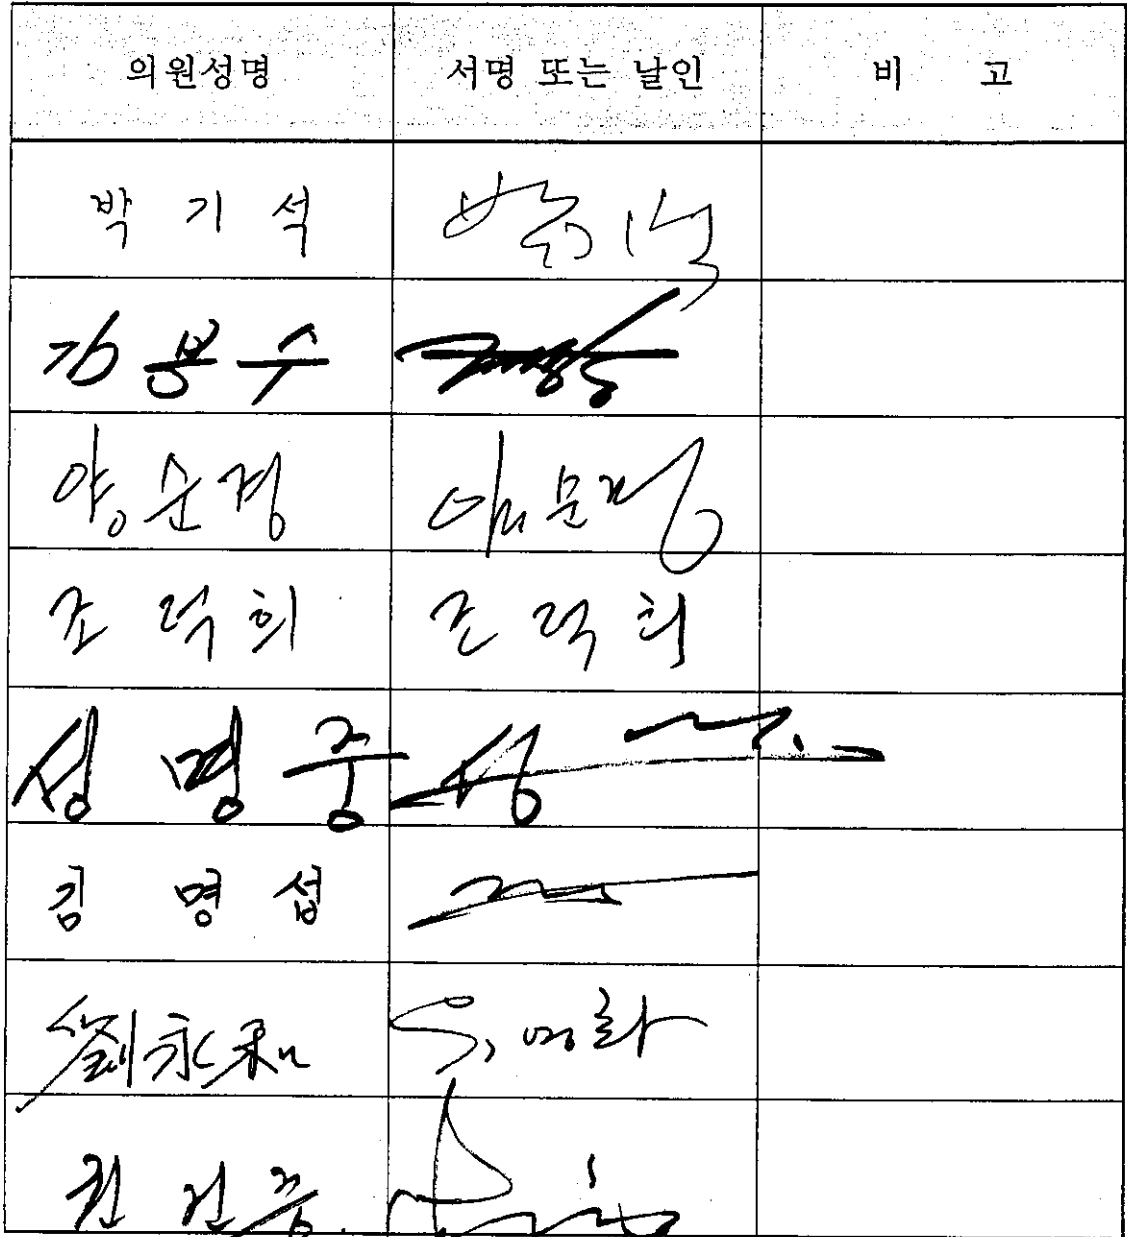 의원성명 서명 또는 날인 비 고
박 기 석
김 봉 수
양 순 경
조 덕 희 조 덕 희
성 명 중 성
김 명 섭
劉永和 유영화
권 건 중